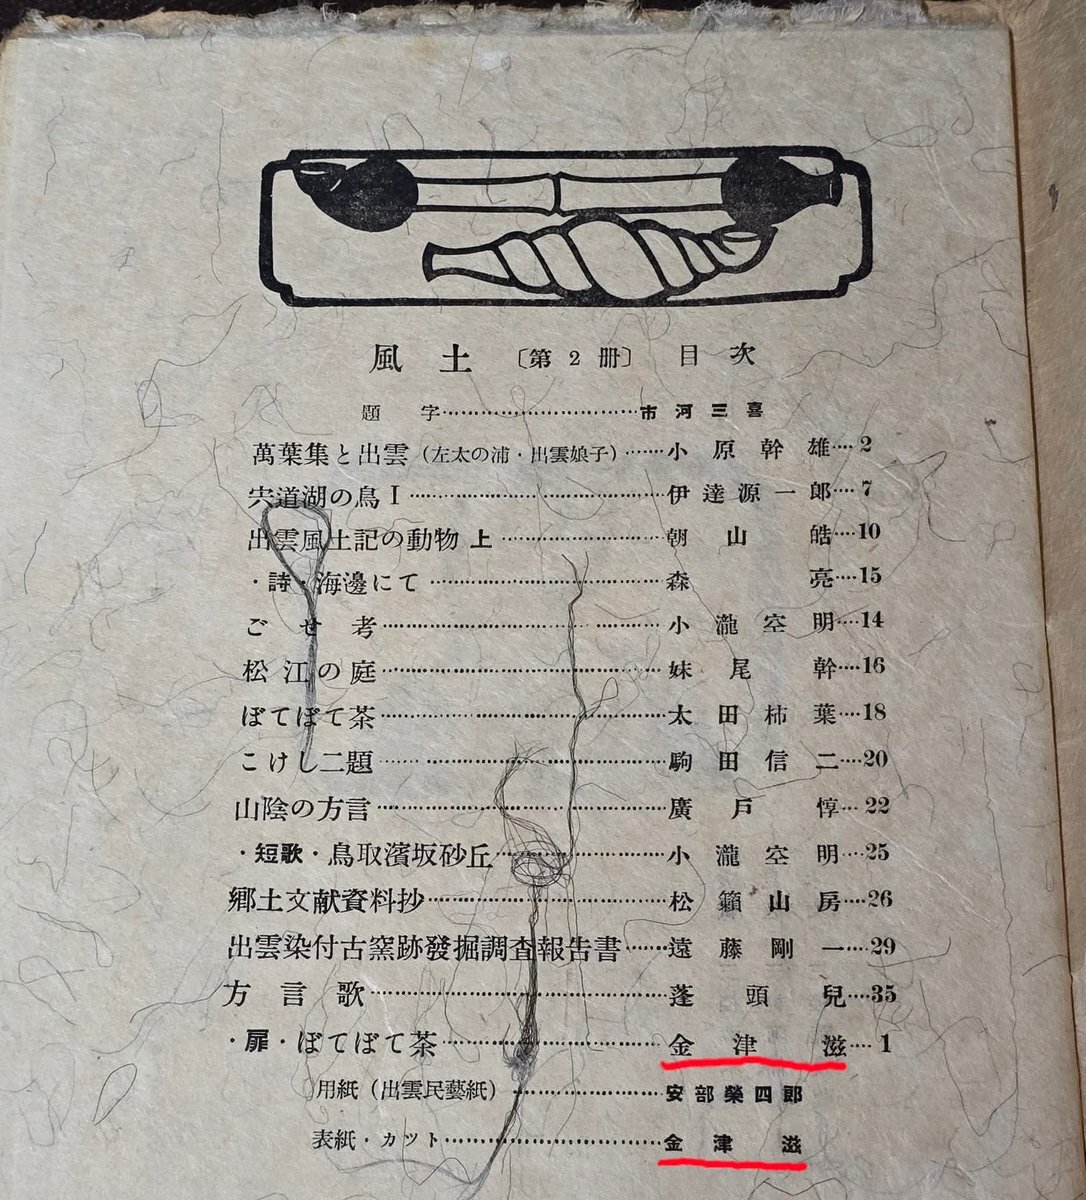 風土〔第2册〕目次
題字……市河三喜
萬葉集と出雲(左太の浦・出雲娘子)……小原幹雄……2
宍道湖の鳥Ⅰ……伊達源一郎……7
出雲風土記の動物 上……朝山皓……10
・詩・海邊にて……森亮……15
ごせ考……小瀧空明……14
松江の庭……妹尾幹……16
ぼてぼて茶……太田柿葉……18
こけし二題……駒田信二……20
山陰の方言……廣戸惇……22
・短歌・鳥取濱坂砂丘……小瀧空明……25
郷土文献資料抄……松籟山房……26
出雲染付古窯跡發掘調査報告書……遠藤剛一……29
方言歌……蓬頭兒……35
・扉・ぼてぼて茶……金津滋……1
用紙(出雲民藝紙)……安部榮四郎
表紙・カット……金津滋